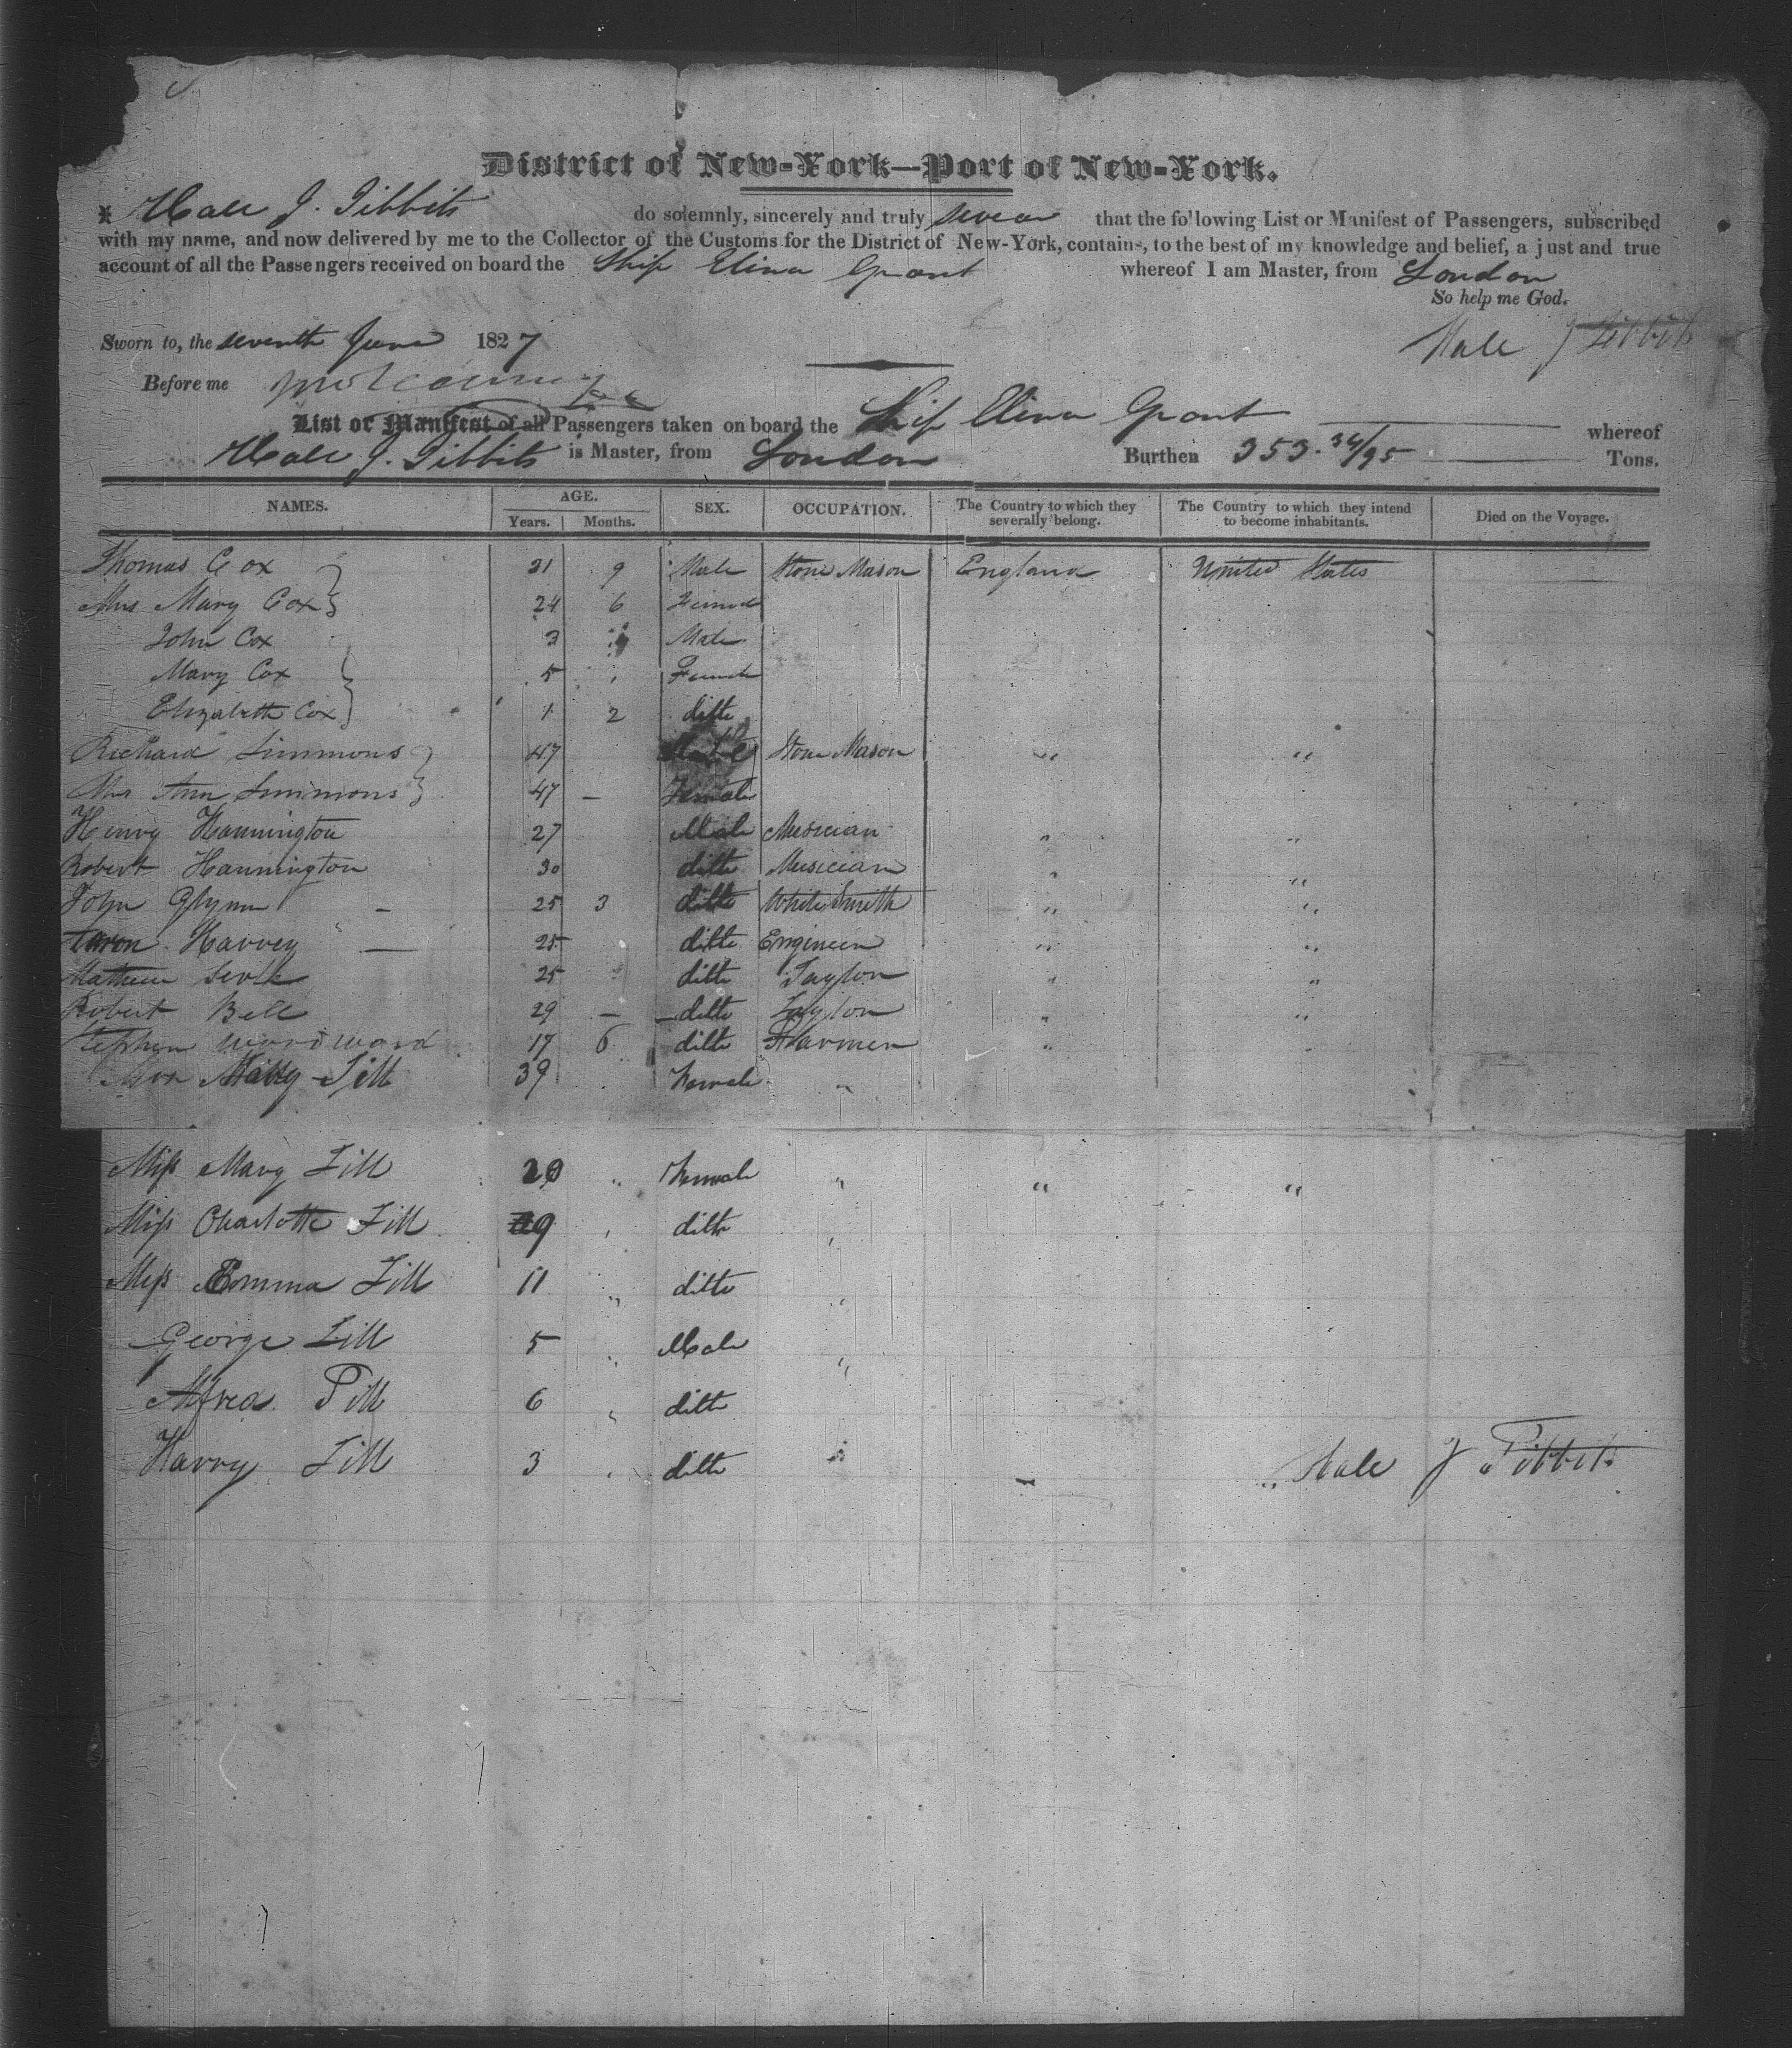 District of New-York—Port of New-York.
I Hall J. Tibbits do solemnly, sincerely and truly swear that the following List or Manifest of Passengers, subscribed
with my name, and now delivered by me to the Collector of the Customs for the District of New-York, contains, to the best of my knowledge and belief, a just and true
account of all the Passengers received on board the Ship Eliza Grant whereof I am Master, from London
So help me God.
Sworn to, the seventh June 1827 Hall J Tibbits
Before me
List or Manifest of all Passengers taken on board the Ship Eliza Grant whereof
Hall J. Tibbits is Master, from London Burthen 353. 34/95 Tons.
NAMES. AGE. SEX. OCCUPATION. The Country to which they severally belong. The Country to which they intend to become inhabitants. Died on the Voyage.
Years. Months.
Thomas Cox 31 9 Male Stone Mason England United States
Mrs Mary Cox 24 6 Female
John Cox 3 Male
Mary Cox 5 Female
Elizabeth Cox 1 2 ditto
Richard Simmons 47 Male Stone Mason " "
Mrs Ann Simmons 47 — Female
Henry Hannington 27 Male Musician " "
Robert Hannington 30 ditto Musician " "
John Glynn — 25 3 ditto White Smith " "
Aaron Harvey — 25 ditto Engineer " "
Mathew 25 ditto Taylor " "
Robert Bell 29 — ditto Taylor " "
Stephen Woodward 17 6 ditto Farmer "
Till 39 Female "
Miss Mary Till 20 " Female " " "
Miss Charlotte Till 9 " ditto "
Miss Emma Till 11 " ditto "
George Till 5 " Male "
Alfred Till 6 " ditto
Harry Till 3 " ditto " Hall J Tibbits